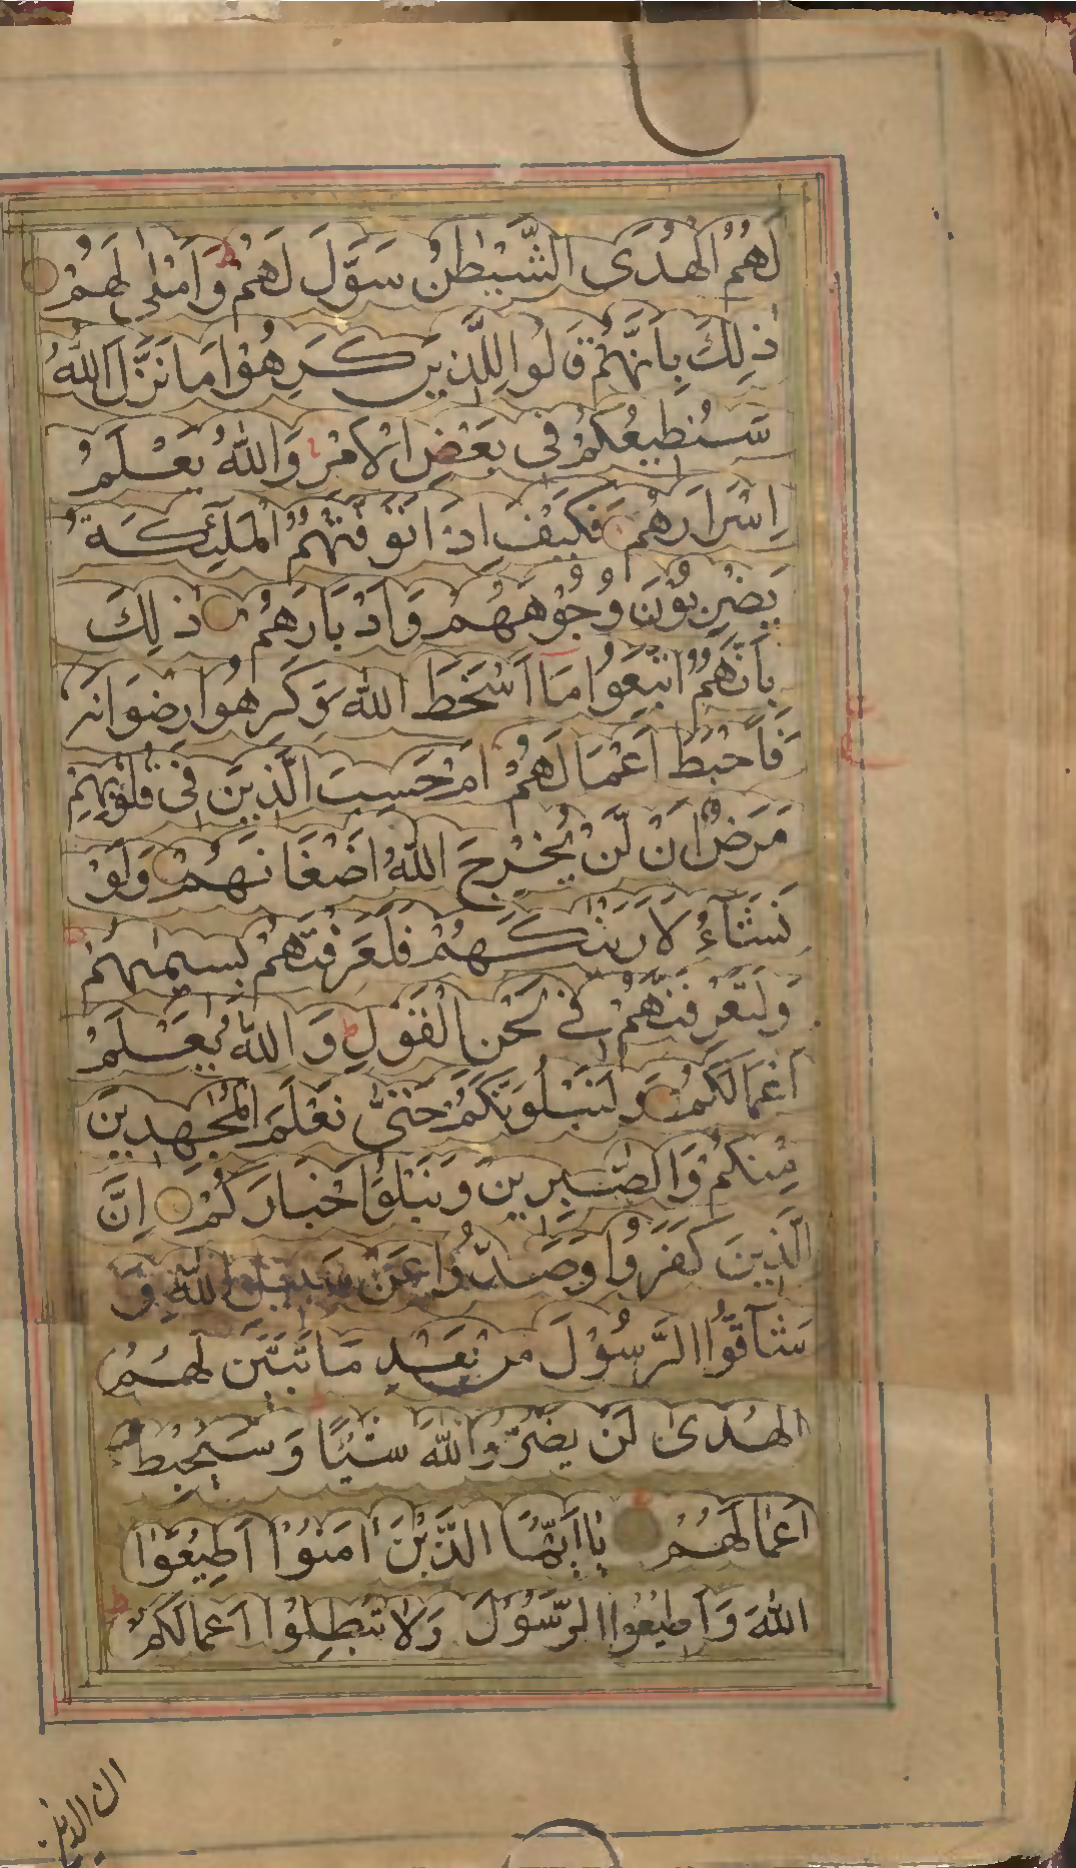 لَهُمُ الْهُدَى الشَّيْطٰنُ سَوَّلَ لَهُمْ ط وَاَمْلٰى لَهُمْ
ذٰلِكَ بِاَنَّهُمْ قَالُوا لِلَّذِيْنَ كَرِهُوْا مَا نَزَّلَ اللّٰهُ
سَنُطِيْعُكُمْ فِى بَعْضِ الْاَمْرِ وَاللّٰهُ يَعْلَمُ
اِسْرَارَهُمْ فَكَيْفَ اِذَا تَوَفَّتْهُمُ الْمَلٰٓئِكَةُ
يَضْرِبُوْنَ وُجُوْهَهُمْ وَاَدْبَارَهُمْ ذٰلِكَ
بِاَنَّهُمُ اتَّبَعُوْا مَا اَسْخَطَ اللّٰهَ وَكَرِهُوْا رِضْوَانَهٗ
فَاَحْبَطَ اَعْمَالَهُمْ اَمْ حَسِبَ الَّذِيْنَ فِىْ قُلُوْبِهِمْ
مَرَضٌ اَنْ لَّنْ يُّخْرِجَ اللّٰهُ اَضْغَانَهُمْ وَلَوْ
نَشَآءُ لَاَرَيْنٰكَهُمْ فَلَعَرَفْتَهُمْ بِسِيْمٰىهُمْ
وَلَتَعْرِفَنَّهُمْ فِى لَحْنِ الْقَوْلِ ط وَاللّٰهُ يَعْلَمُ
اَعْمَالَكُمْ وَلَنَبْلُوَنَّكُمْ حَتّٰى نَعْلَمَ الْمُجٰهِدِيْنَ
مِنْكُمْ وَالصّٰبِرِيْنَ وَنَبْلُوَا اَخْبَارَكُمْ اِنَّ
الَّذِيْنَ كَفَرُوْا وَصَدُّوْا عَنْ سَبِيْلِ اللّٰهِ وَ
شَآقُّوا الرَّسُوْلَ مِنْ بَعْدِ مَا تَبَيَّنَ لَهُمُ
الْهُدٰى لَنْ يَضُرُّوا اللّٰهَ شَيْئًا وَسَيُحْبِطُ
اَعْمَالَهُمْ يَااَيُّهَا الَّذِيْنَ اٰمَنُوْا اَطِيْعُوْا
اللّٰهَ وَاَطِيْعُوا الرَّسُوْلَ وَلَا تُبْطِلُوْا اَعْمَالَكُمْ
ان الذين